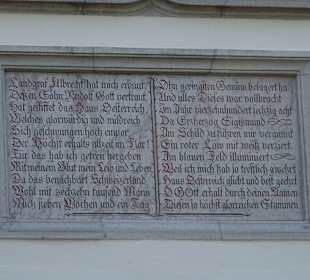 Landgraf Albrecht hat mich erbaut
Dessen Sohn Rudolf Gott vertraut
Hat gestifftet das Haus Oesterreich,
Welches glorwürdig und mildreich
Sich geschwungen hoch empor
Der Höchst erhalts allzeit im Flor!
Für das hab ich getreu hergeben
Mit meinem Blut mein Leib und Leben
Da das benachbart Schweizerland
Wohl mit sechzehn tausend Mann
Mich sieben Wochen und ein Tag
Ohn geringsten Gewinn belagert ha
Und alles Dieses war vollbracht
Im Jahr vierzehnhundert sechzig acht
Da Erzherzog Sigismund
Im Schild zu führen mir vergunnt
Ein roter Löw mit weiß verziert
Im blauen Feld illuminiert
Weil ich mich hab so trefflich gwehrt
Haus Oesterreich gliebt und best geehrt
O GOtt erhalt durch deinen Namen
Diesen so höchst glorreichen Stammen